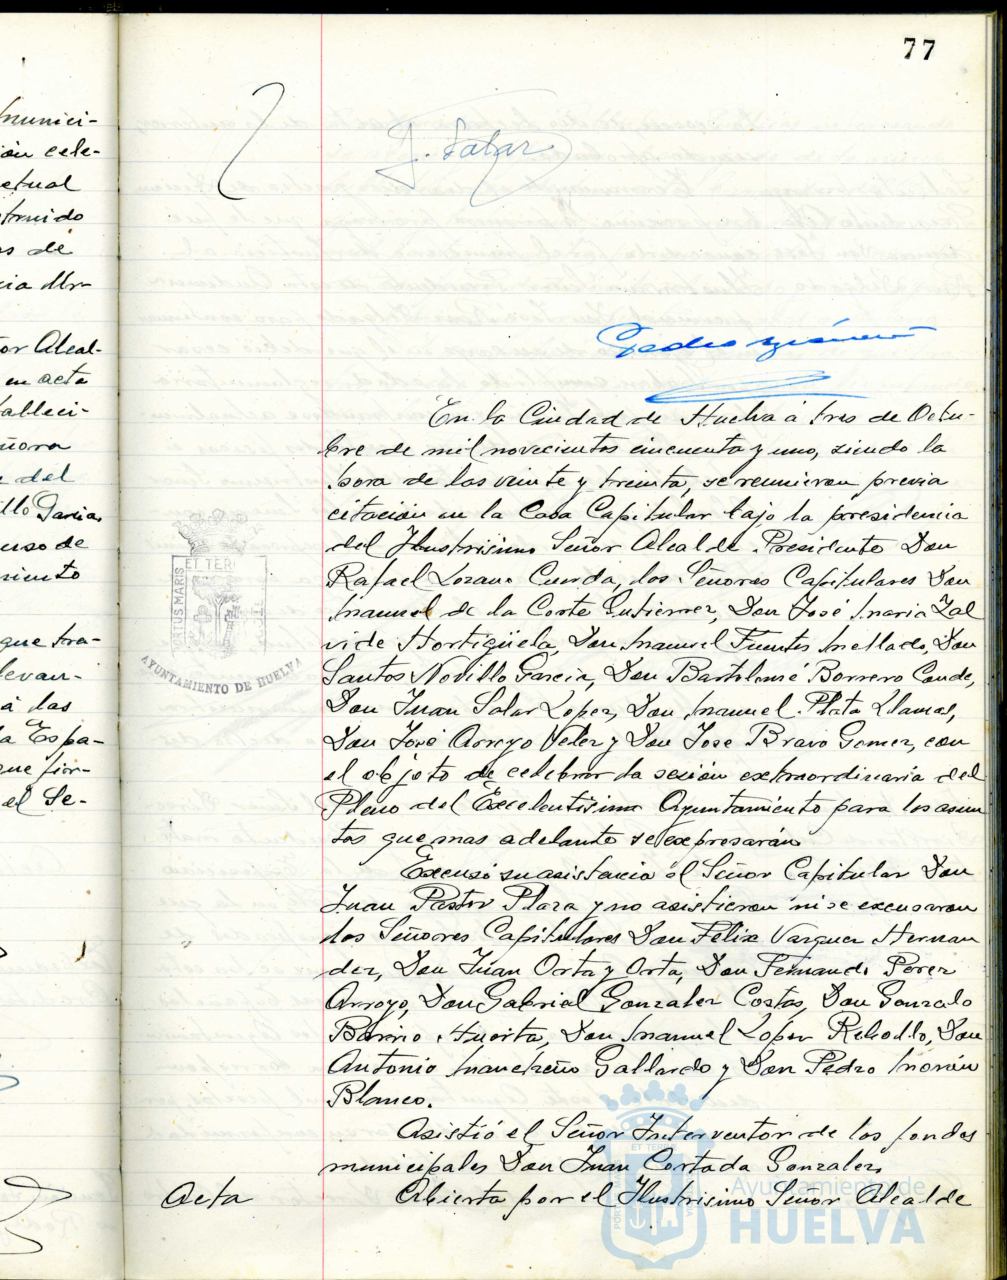 77
munici-
ón cele-
ctual
de
or Alcal-
en acta
alleci-
ñora
del
llo Garcia,
urso de
miento
que tra-
levan-
á las
a Espa-
que fir-
el Se-
J. Salar
En la Ciudad de Huelva á tres de Octu-
bre de mil novecientos cincuenta y uno, siendo la
hora de las veinte y treinta, se reunieron previa
citación en la Casa Capitular bajo la presidencia
del Ilustrisimo Señor Alcalde Presidente Don
Rafael Lozano Cuerda, los Señores Capitulares Don
Manuel de la Corte Gutierrez, Don José Maria Zal
vide Hortigüela, Don Manuel Fuentes Mellado, Don
Santos Novillo Garcia, Don Bartolomé Borrero Conde,
Don Juan Salar Lopez, Don Manuel Plata Llamas,
Don José Arroyo Velez y Don Jose Bravo Gomez, con
el objeto de celebrar la sesión extraordinaria del
Pleno del Excelentisimo Ayuntamiento para los asun
tos que mas adelante se expresarán
Excusó su asistencia el Señor Capitular Don
Juan Pastor Plaza y no asistieron ni se excusaron
los Señores Capitulares Don Felix Vazquez Hernan
dez, Don Juan Orta y Orta, Don Fernando Perez
Arroyo, Don Gabriel Gonzalez Costas, Don Gonzalo
Barrio Huerta, Don Manuel Lopez Rebollo, Don
Antonio Mancheño Gallardo y Don Pedro Morón
Blanco.
Asistió el Señor Interventor de los fondos
municipales Don Juan Cortada Gonzalez,
Acta Abierta por el Ilustrisimo Señor Alcalde
PORTUS MARIS ET TERR
AYUNTAMIENTO DE HUELVA
Ayuntamiento de
HUELVA